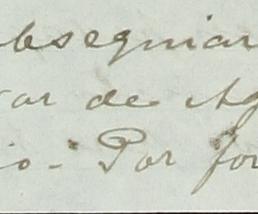 bsequiar
ar de Ag
io- Por for